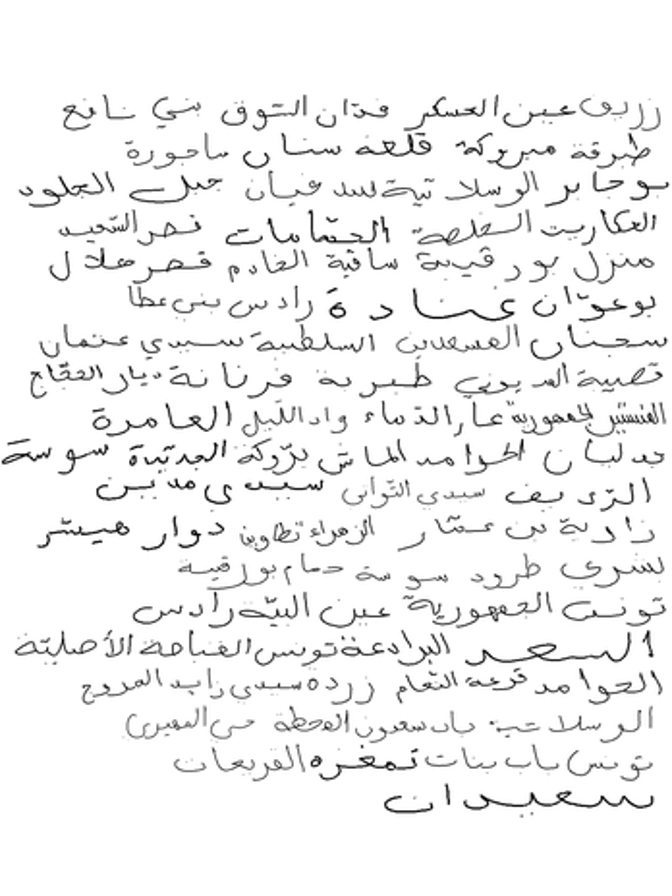 زريق عين العسكر فدّان السّوق بني نافع
طبرقة مبروكة قلعة سنان ساحورة
بوجابر الوسلاتية سفيان جبل الجلود
العكاريت السلطة الحمّامات قصر السّعيد
منزل بورقيبة ساقية الخادم قصر هلال
بوعوّان عنادة رادس بني عطا
سجنان السلطنية سيدي عثمان
قصيبة المديوني طبربة فرنانة ديار الحجّاج
الجمهورية عمّار الدّماء واد اللّيل العامرة
جدليان الحوامد الماتش برّوكة الجديدة سوسة
الزريف سيدي التواتي سيدي مدين
زاوية بن عمّار الزهراء تطاوين دوار هيشر
بشرى طرود سوسة حمام بورقيبة
تونس الجمهورية عين البيّة رادس
السعد البرادعة تونس القباعة الأصليّة
الحوامد قرعة النعام زردة سيدي زايد المروج
الوسلاتية باب سعدون المحطة حي المهيري
تونس باب بنات تمغزة القريعات
سعيدان